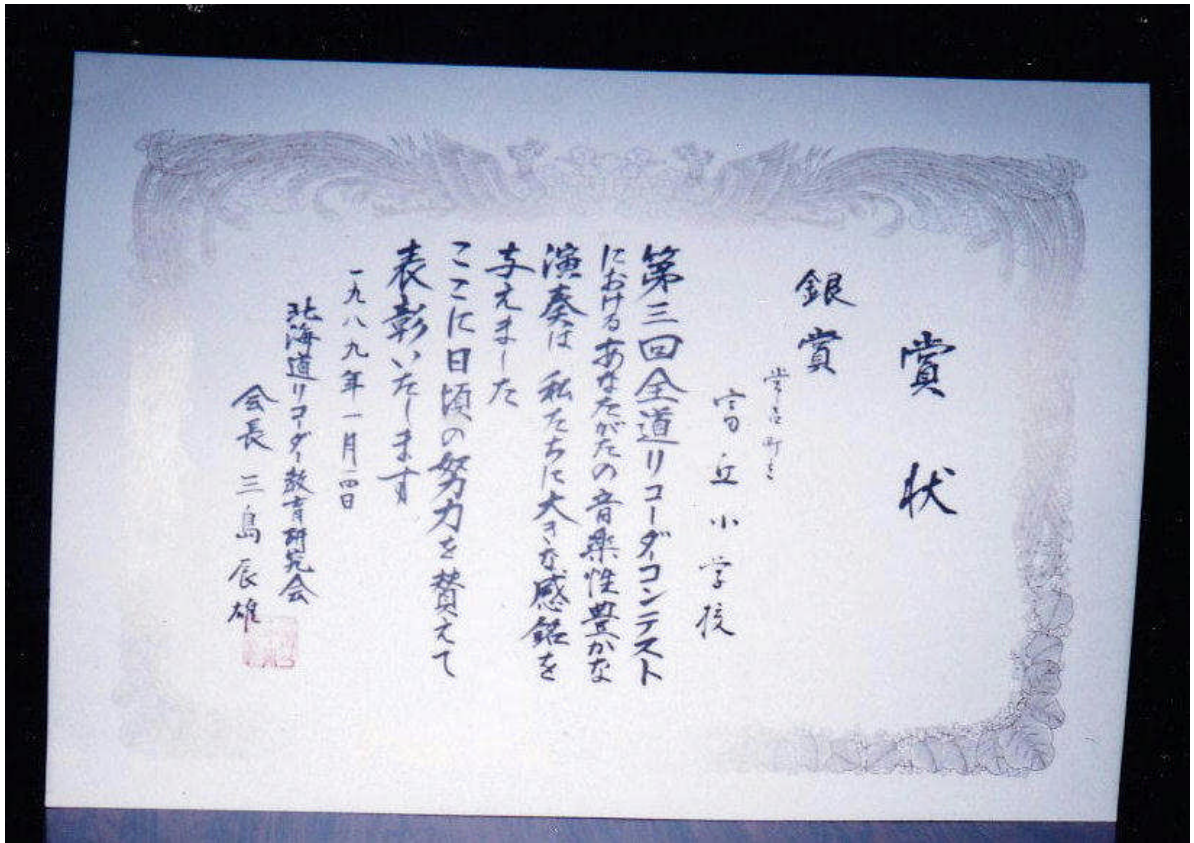 賞状
銀賞
常呂町立
富丘小学校
第三回全道リコーダーコンテスト
におけるあなたがたの音楽性豊かな
演奏は 私たちに大きな感銘を
与えました
ここに日頃の努力を賛えて
表彰いたします
一九八九年一月
北海道リコーダー教育研究会
会長 三島辰雄